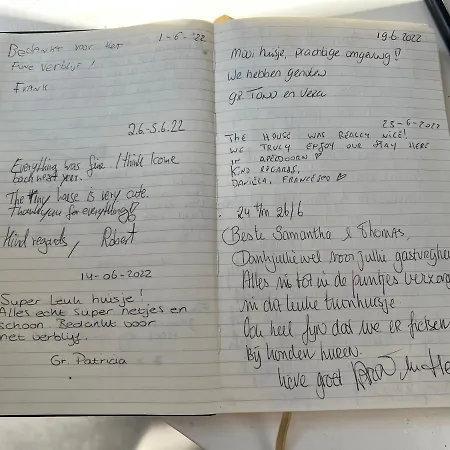 1-6-'22
Bedankt voor het
Fijne verblijf!
Frank
2.6-5.6.22
Everything was fine. I think I come
back next year.
The tiny house is very cute.
Thank you for everything!!
Kind regards, Robert
14-06-2022
Super Leuk huisje!
Alles echt super netjes en
schoon. Bedankt voor
het verblijf.
Gr. Patricia
19.6.2022
Mooi huisje, prachtige omgeving!!
We hebben genoten
gr Tono en Vera
23-6-2022
THE HOUSE WAS REALLY NICE!
WE TRULY ENJOY OUR STAY HERE
IN APELDOORN ♡
KIND REGARDS,
DANIELA, FRANCESCO ♡
24 t/m 26/6
Beste Samantha & Thomas,
Dank jullie wel voor jullie gastvrijhei
Alles is tot in de puntjes verzorg
in dit leuke tuinhuisje
Ook heel fijn dat we er fietsen
bij konden huren.
lieve groet